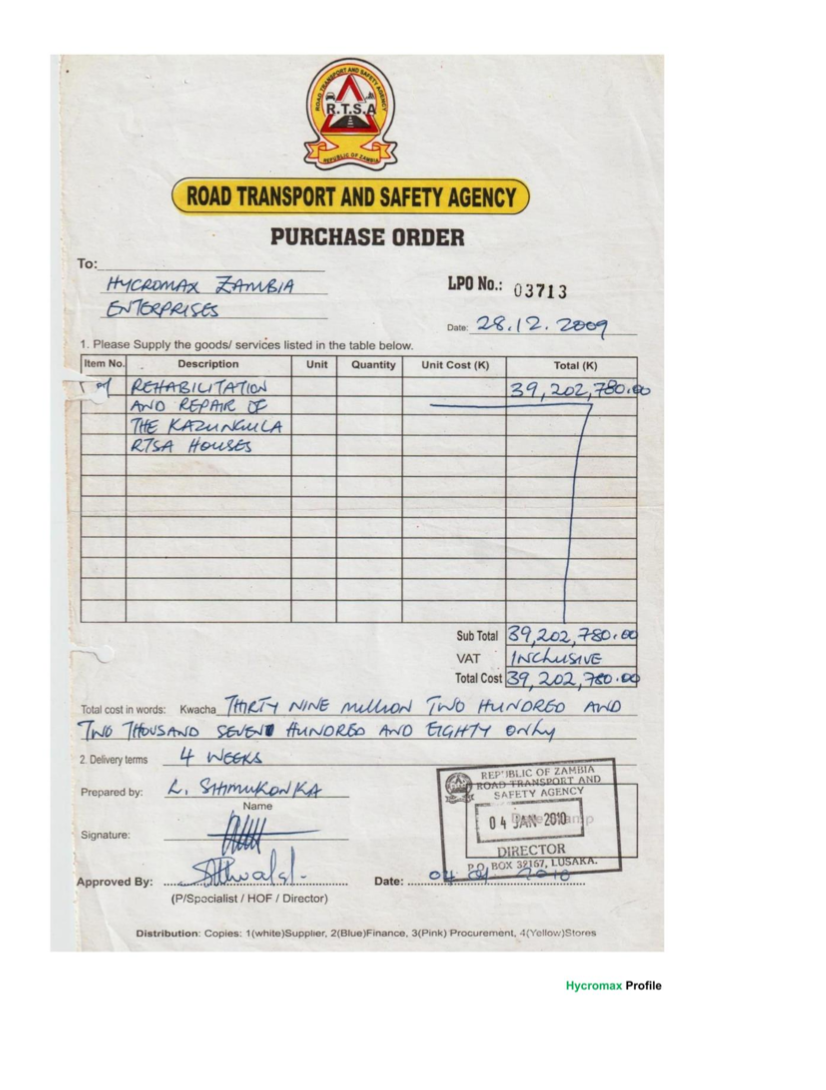 ROAD TRANSPORT AND SAFETY AGENCY
R.T.S.A
REPUBLIC OF ZAMBIA
ROAD TRANSPORT AND SAFETY AGENCY
PURCHASE ORDER
To:
HYCROMAX ZAMBIA
ENTERPRISES
LPO No.: 03713
Date: 28.12.2009
1. Please Supply the goods/ services listed in the table below.
Item No. Description Unit Quantity Unit Cost (K) Total (K)
REHABILITATION 39,202,780.00
AND REPAIR OF
THE KAZUNGULA
RTSA HOUSES
Sub Total 39,202,780.00
VAT INCLUSIVE
Total Cost 39,202,780.00
Total cost in words: Kwacha THIRTY NINE MILLION TWO HUNDRED AND
TWO THOUSAND SEVEN HUNDRED AND EIGHTY ONLY
2. Delivery terms 4 WEEKS
Prepared by: L. SHIMUKONKA
Name
Signature:
REPUBLIC OF ZAMBIA
ROAD TRANSPORT AND
SAFETY AGENCY
04 JAN 2010
DIRECTOR
P.O. BOX 32167, LUSAKA.
Approved By: Date: 04 01 2010
(P/Specialist / HOF / Director)
Distribution: Copies: 1(white)Supplier, 2(Blue)Finance, 3(Pink) Procurement, 4(Yellow)Stores
Hycromax Profile